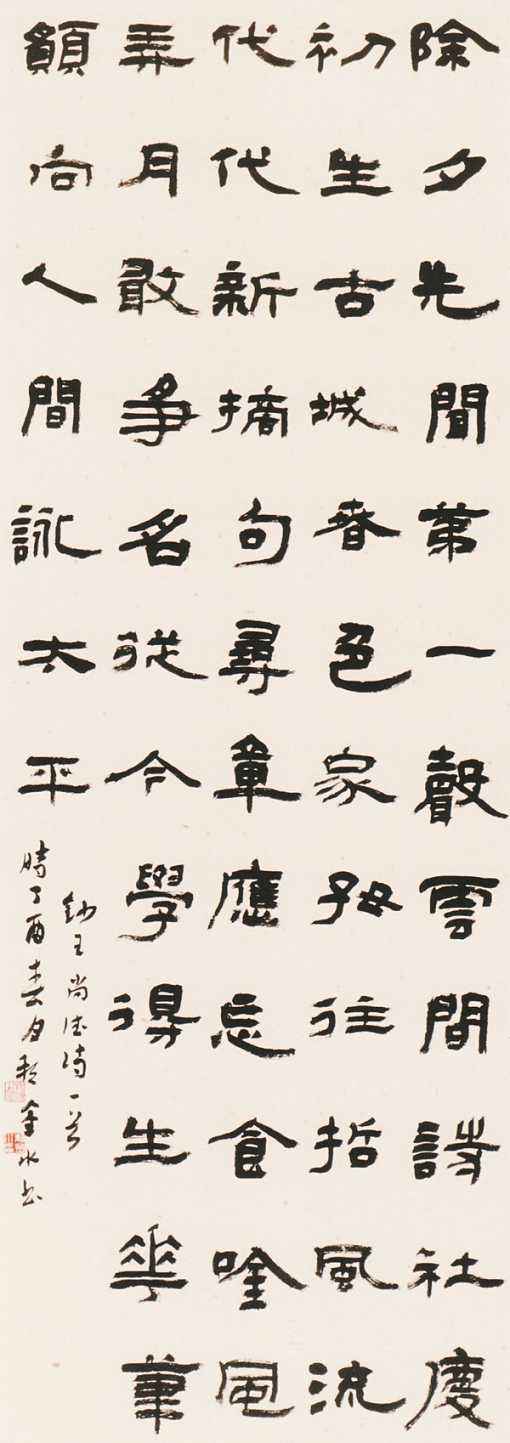 除夕先聞第一聲雲間詩社慶
初生古城春色家珍往哲風流
代代新摘句尋章應忘食吟風
弄月敢爭名從今學得生花筆
願向人間詠太平
錄王尚德詩一首
時丁酉春月金水書